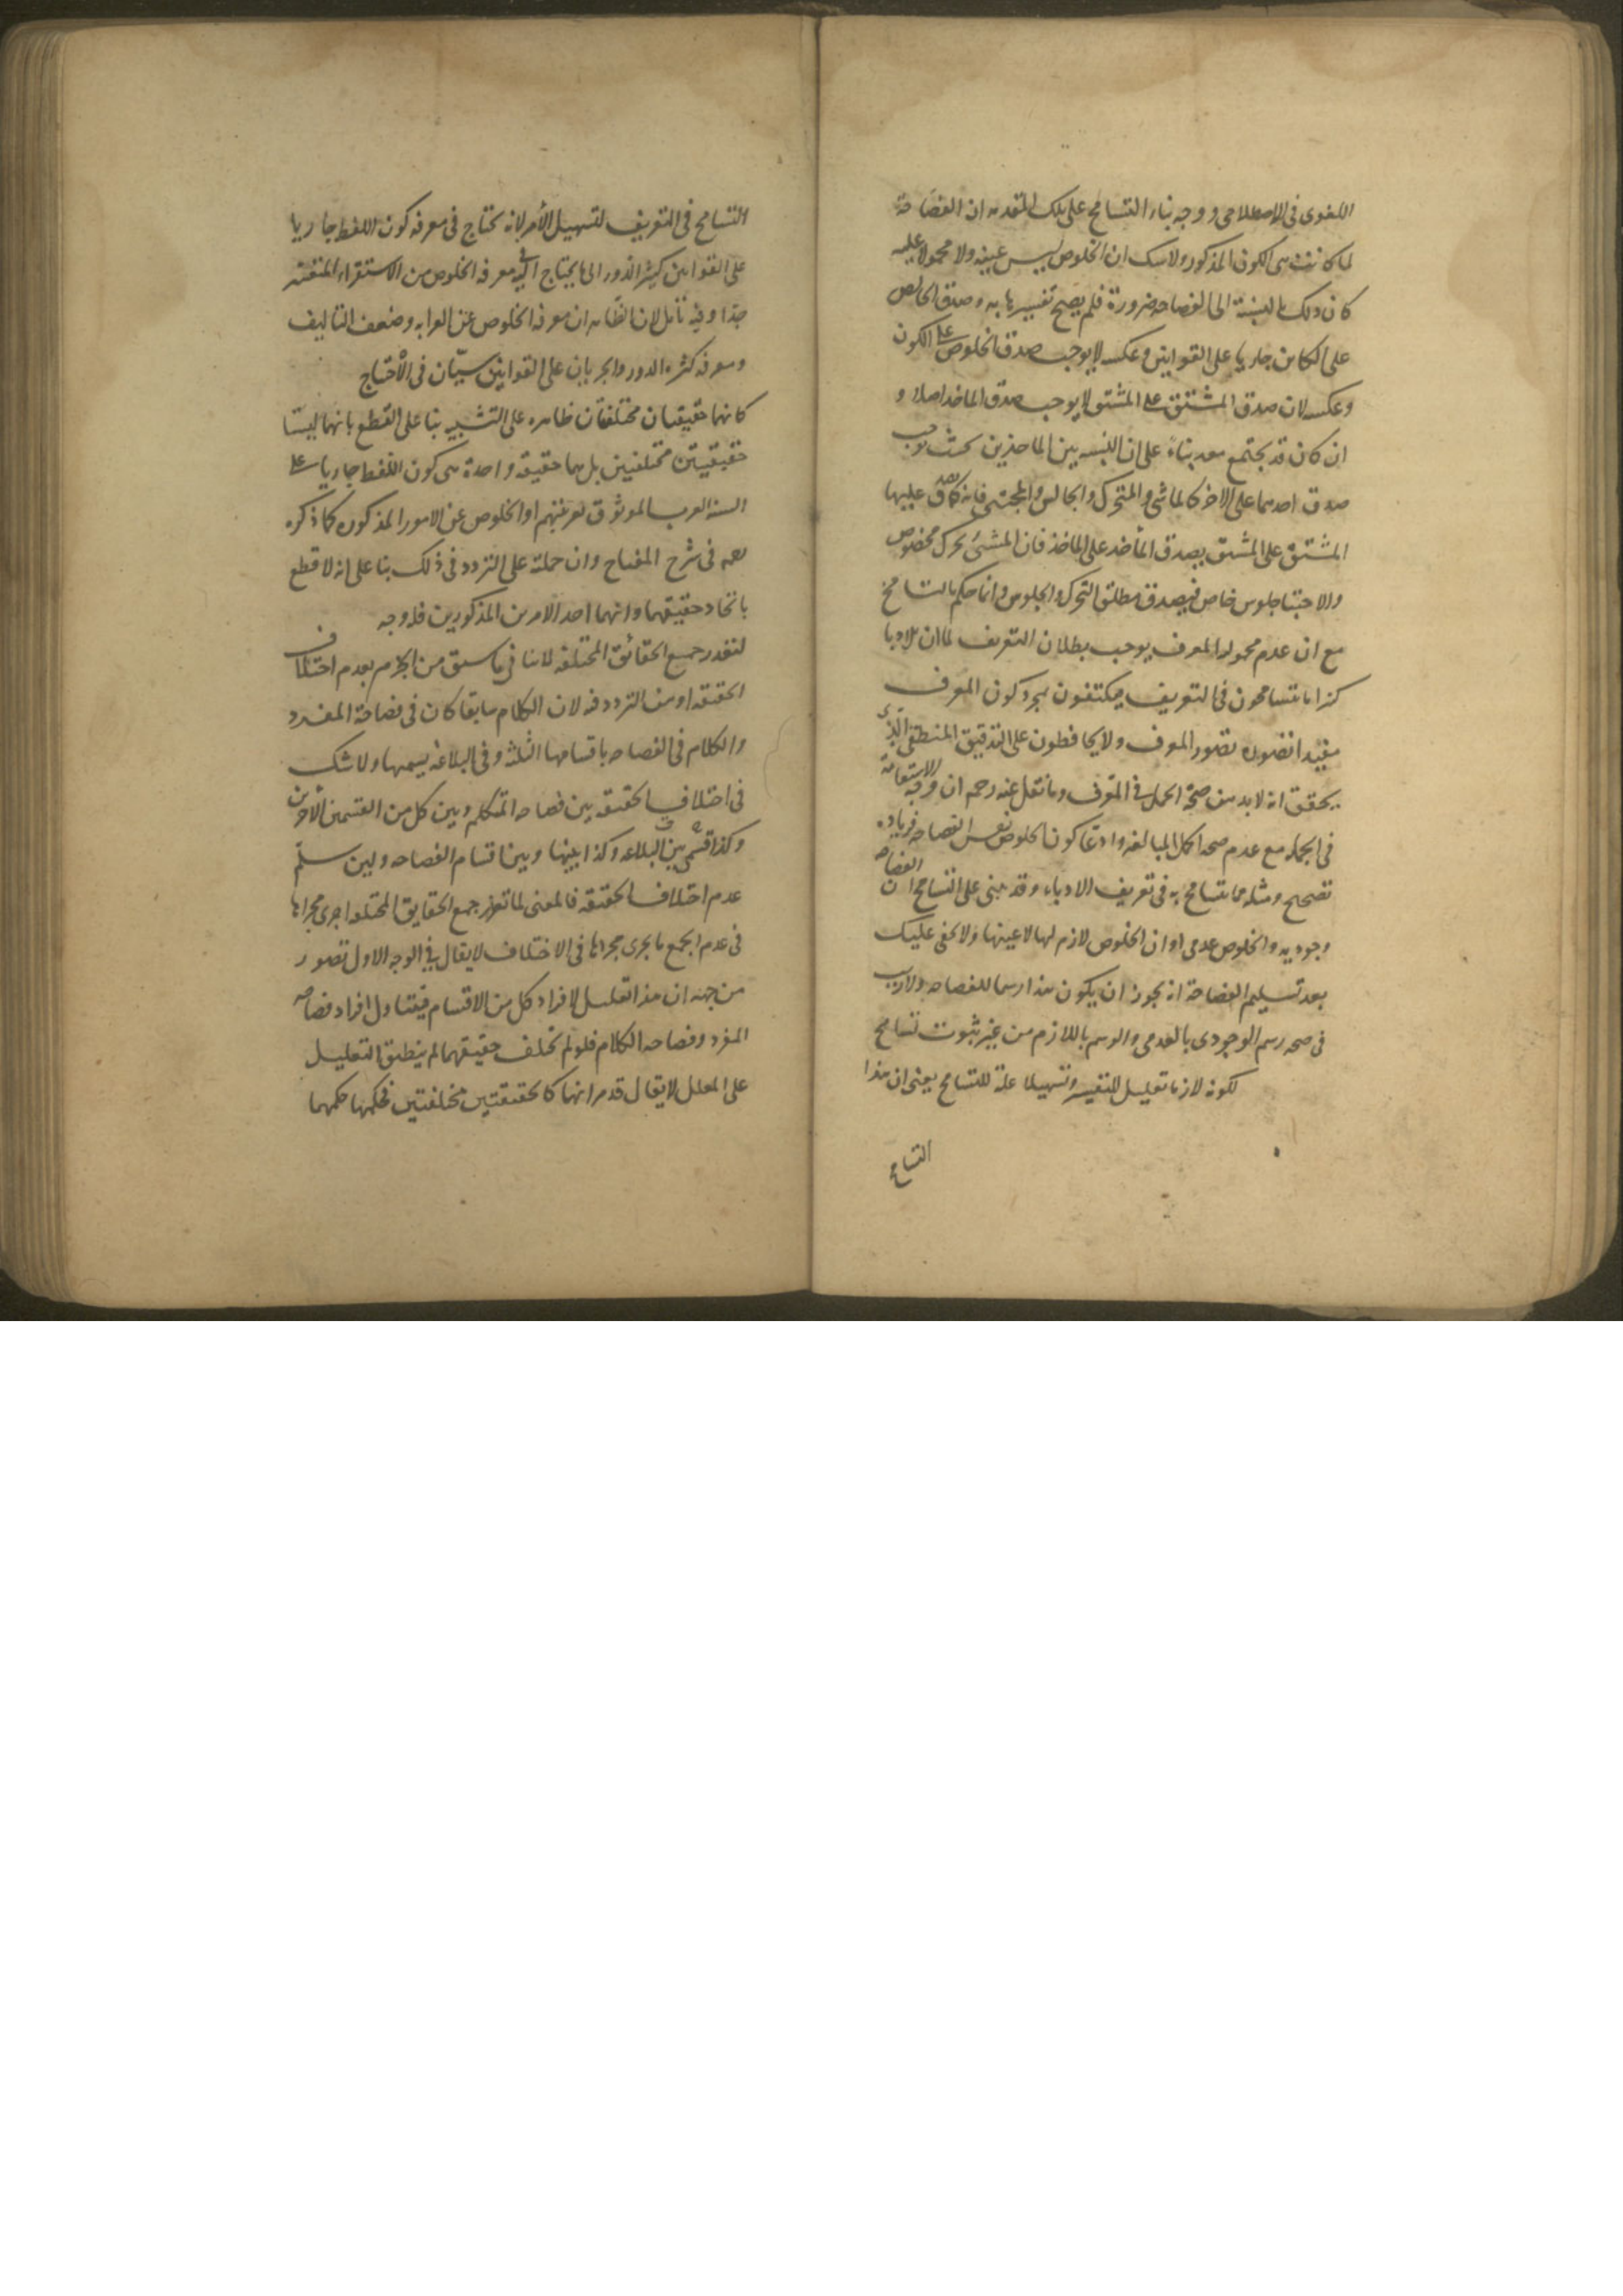 اللغوى فى الاصطلاحى ووجه بناء التسامح على تلك المقدمه ان الفصاحة
لما كانت هى الكون المذكور ولا شك ان الخلوص ليس عينه ولا محمولا عليه
كان ذلك بالنسبة الى الفصاحه ضرورة فلم يصح تفسيرها به وصدق الخالص
على الكائن جاريا على القوانين وعكسه لا يوجب صدق الخلوص على الكون
وعكسه لان صدق المشتق على المشتق لا يوجب صدق الماخذ اصلا و
ان كان قد يجتمع معه بناء على ان النسبه بين الماخذين بحيث يوجب
صدق احدهما على الاخر كالماشى والمتحرك والجالس والمجتبى فانه كما صدق عليها
المشتق على المشتق يصدق المأخذ على الماخذ فان المشى تحرك مخصوص
والاحتبا جلوس خاص فيصدق مطلق التحرك والجلوس وانما حكم بالتسامح
مع ان عدم محموليه المعرف يوجب بطلان التعريف لما ان للادبا
كثيرا ما يتسامحون فى التعريف ويكتفون بمجرد كون المعرف
مفيدا تصوره تصور المعرف ولا يحافظون على التدقيق المنطقى الذى
يحقق انه لا بد من صحة الحمل فى المعرف وما نقل عنه رحمه ان وجه الاستقامة
فى الجمله مع عدم صحه الحمل المبالغه وادعا كون الخلوص نفس الفصاحه فزياده
تصحيح ومثله مما يتسامح به فى تعريف الادباء وقد يبنى على التسامح ان الفصاحه
وجوديه والخلوص عدمى او ان الخلوص لازم لها لا عينها ولا يخفى عليك
بعد تسليم الفصاحة انه يجوز ان يكون هذا رسما للفصاحه ولا ريب
فى صحه رسم الوجودى بالعدمى والرسم باللازم من غير ثبوت تسامح
لكونه لازما تعليل للتفسير وتسهيلا علة للتسامح يعنى ان هذا
التسامح
التسامح فى التعريف لتسهيل الأمر لانه يحتاج فى معرفه كون اللفظ جاريا
على القوانين كثير الدور الى ما يحتاج اليه فى معرفه الخلوص من الاستقراء المتعسر
جدا وفيه تأمل لان الظاهر ان معرفه الخلوص عن الغرابه وضعف التاليف
ومعرفه كثره الدور والجريان على القوانين سيّان فى الاحتياج
كانهما حقيقتان مختلفتان ظاهره على التشبيه بنا على القطع بانهما ليستا
حقيقيتين مختلفتين بل هما حقيقه واحدة هى كون اللفظ جاريا على
السنة العرب الموثوق بعربيتهم او الخلوص عن الامور المذكوره كما ذكره
رحمه فى شرح المفتاح وان حملته على التردد فى ذلك بنا على انه لا قطع
باتحاد حقيقتهما وانهما احد الامرين المذكورين فلا وجه
لتعذر جميع الحقائق المختلفه لانا فى ما سبق من الجزم بعدم اختلاف
الحقيقه او من التردد فيه لان الكلام سابقا كان فى فصاحة المفرد
والكلام فى الفصاحه باقسامها الثلثة وفى البلاغه بقسميها ولا شك
فى اختلاف الحقيقه بين فصاحه المتكلم وبين كل من القسمين الأخرين
وكذا قسمى بين البلاغه وكذا بينها وبين اقسام الفصاحه ولئن سلم
عدم اختلاف الحقيقه فالمعنى لما تعذر جمع الحقايق المختلفه اجرى مجراها
فى عدم الجمع ما يجرى مجراها فى الاختلاف لا يقال فى الوجه الاول قصور
من جهه ان هذا تعليل لافراد كل من الاقسام فيتناول افراد فصاحه
المفرد وفصاحه الكلام فلو لم تختلف حقيقتهما لم ينطبق التعليل
على المعلل لا يقال قد مر انهما كحقيقتين مختلفتين فحكمهما حكمهما